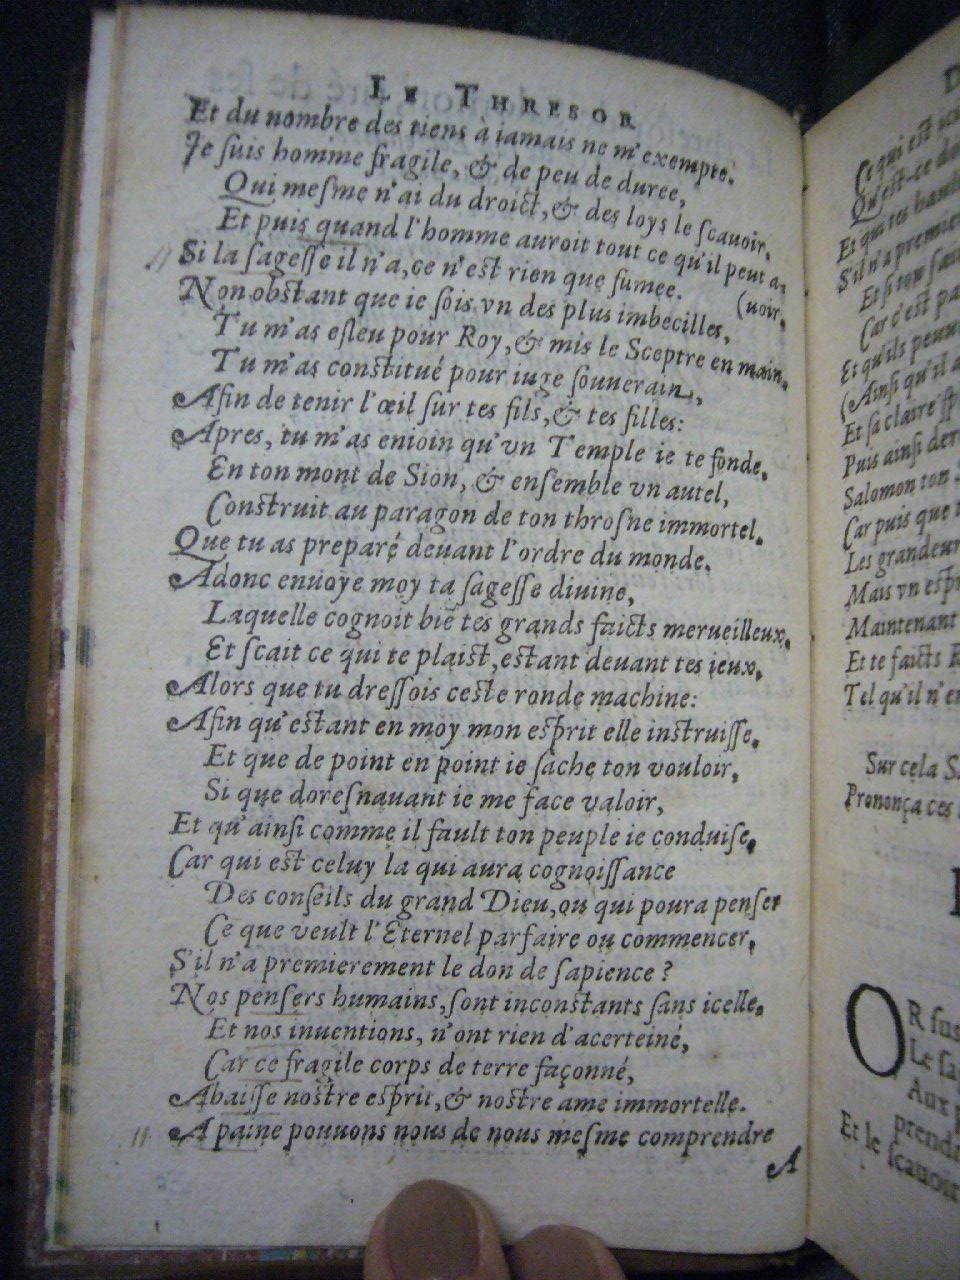 LE THRESOR
Et du nombre des tiens à iamais ne m'exempte.
Je suis homme fragile, & de peu de duree,
Qui mesme n'ai du droict, & des loys le scauoir.
Et puis quand l'homme auroit tout ce qu'il peut a-
Si la sagesse il n'a, ce n'est rien que fumee. (uoir,
Nonobstant que ie sois vn des plus imbecilles,
Tu m'as esleu pour Roy, & mis le Sceptre en main,
Tu m'as constitué pour iuge souuerain,
Afin de tenir l'œil sur tes fils, & tes filles:
Apres, tu m'as enioin qu'vn Temple ie te fonde,
En ton mont de Sion, & ensemble vn autel,
Construit au paragon de ton throsne immortel,
Que tu as preparé deuant l'ordre du monde.
Adonc enuoye moy ta sagesse diuine,
Laquelle cognoit biē tes grands faicts merueilleux,
Et scait ce qui te plaist, estant deuant tes ieux,
Alors que tu dressois ceste ronde machine:
Afin qu'estant en moy mon esprit elle instruisse,
Et que de point en point ie sache ton vouloir,
Si que doresnauant ie me face valoir,
Et qu'ainsi comme il fault ton peuple ie conduise,
Car qui est celuy la qui aura cognoissance
Des conseils du grand Dieu, ou qui poura penser
Ce que veult l'Eternel parfaire ou commencer,
S'il n'a premierement le don de sapience?
Nos pensers humains, sont inconstants sans icelle,
Et nos inuentions, n'ont rien d'acerteiné,
Car ce fragile corps de terre façonné,
Abaisse nostre esprit, & nostre ame immortelle.
A paine pouuons nous de nous mesme comprendre
A
Ce qui est
Qu'est-ce
Et que tes
S'il n'a premie
Et si ton
Car c'est
Et qu'ils
(Ainsi qu'il
Et sa claire
Puis ainsi
Salomon ton
Car puis que
Les grandeur
Mais vn
Maintenant
Et te faicts
Tel qu'il n'en
Sur cela
Prononça ces
OR sus
Le
Aux
prend
Et le scauoir